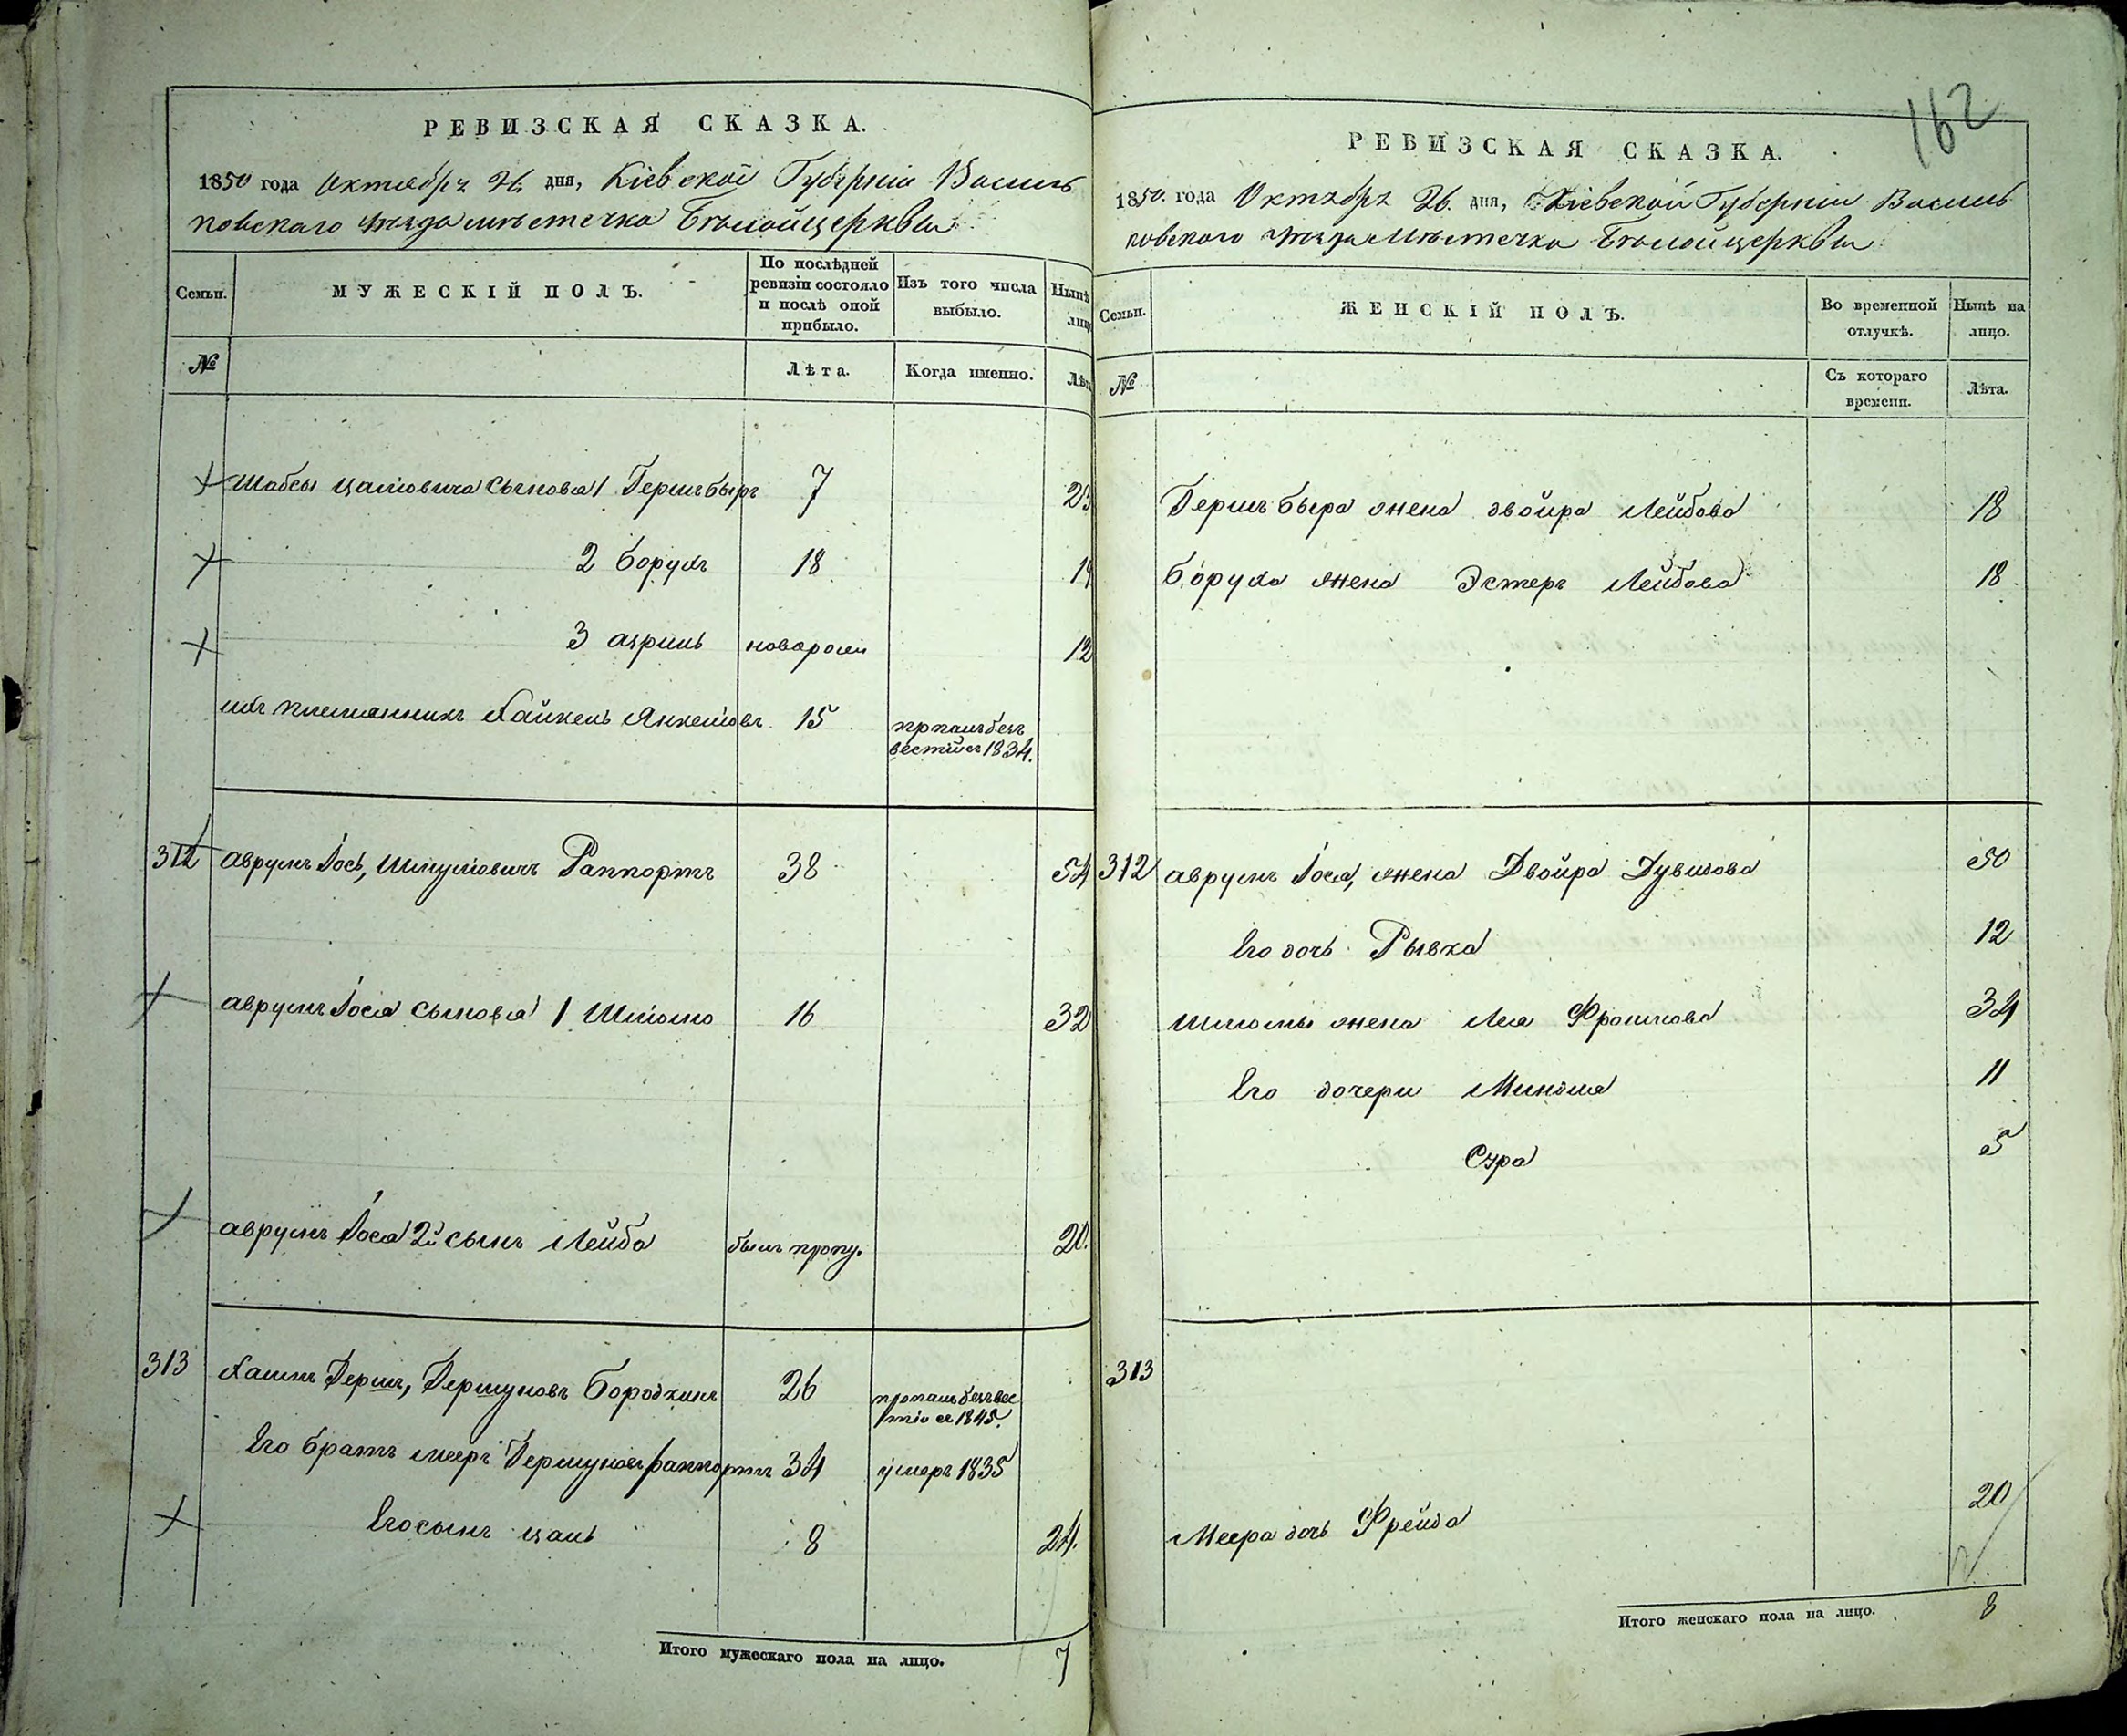 162
РЕВИЗСКАЯ СКАЗКА.
1850 года Октября 26 дня, Кіевской Губерніи Василь
ковскаго уѣзда мѣстечка Бѣлойцеркви
Семьи.
МУЖЕСКІЙ ПОЛЪ.
По послѣдней
ревизіи состояло
и послѣ оной
прибыло.
Изъ того числа
выбыло.
Нынѣ
лицо
№
Лѣта.
Когда именно.
Лѣта
Шабсы Цалiовича сыновья 1 Гершъ быръ 7 23
2 Борухъ 18 19
3 азриль новорож 12
ихъ племянникъ Хайкель Янкелiовъ 15
пропалъ безъ
вести съ 1834.
312 аврумъ Iось, Шмулiовичъ Раппортъ 38 54
аврумъ Iося сыновья 1 Шліома 16 32
аврумъ Iося 2й сынъ Лейба былъ пропу. 20.
313 Хаимъ Герш, Гершуновъ Бородкинъ 26
пропалъ безъ вес
ти съ 1845.
Его братъ мееръ Гершуновъ раппортъ 34 умеръ 1835
Его сынъ цаль 8 24.
Итого мужескаго пола на лицо. 7
РЕВИЗСКАЯ СКАЗКА.
1850. года Октября 26. дня, Кіевской Губерніи Василь
ковскаго уѣзда мѣстечка Бѣлойцеркви
Семьи.
ЖЕНСКІЙ ПОЛЪ.
Во временной
отлучкѣ.
Нынѣ на
лицо.
№
Съ котораго
времени.
Лѣта.
Гершъ быра жена двойра Лейбова 18
Боруха жена Эстеръ Лейбова 18
312 аврумъ Iося, жена Двойра Дувидова 50
Его дочь Рывка 12
Шліомы жена Лея Фроимова 34
Его дочери Миндля 11
Сура 5
313
Меера дочь Фрейда 20
Итого женскаго пола на лицо. 8